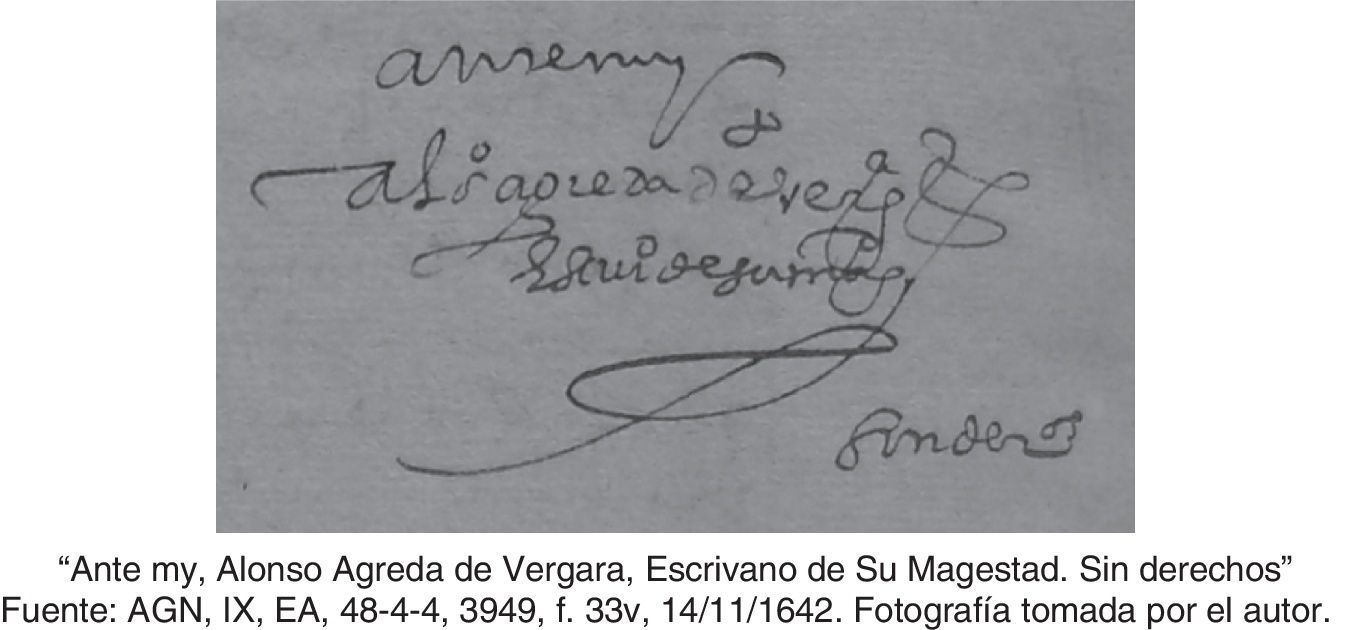 ante my
alº agreda de vergª
Escrivº de su magᵈ
sin derºˢ
“Ante my, Alonso Agreda de Vergara, Escrivano de Su Magestad. Sin derechos”
Fuente: AGN, IX, EA, 48-4-4, 3949, f. 33v, 14/11/1642. Fotografía tomada por el autor.